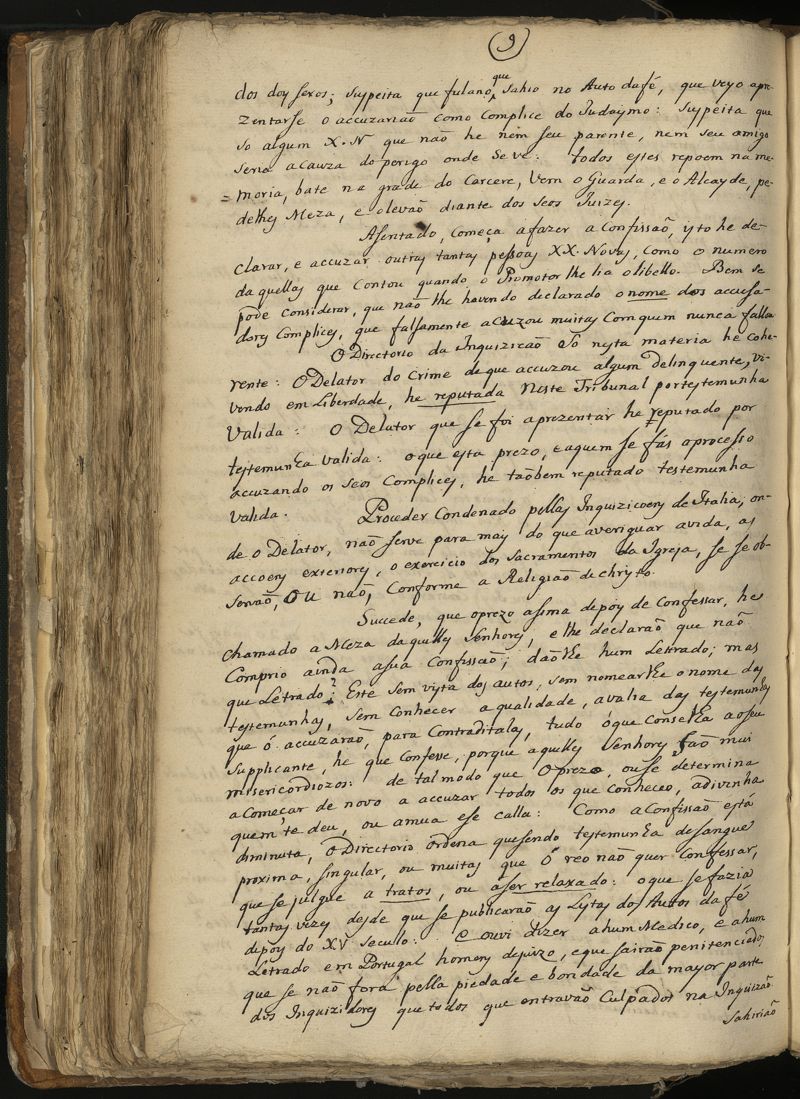 9
dos doy sexos; suspeita que fulano, que Sahio no Auto da fé, que veyo apre-
zentarse o accuzarião como Complice do Judaysmo: suspeita que
so algum X. N que não he nem seu parente, nem seu amigo
seria a Cauza do perigo onde Se vê: todos estes repoem na me-
=moria, bate na grade do Carcere, Vem o Guarda, e o Alcayde, pe-
delhes Meza, e o levão diante dos Seos Juizes.
Asentado, começa a fazer a Confissaõ, isto he de-
clarar, e accuzar outras tantas pessoas XX. Novos, como o numero
daquellas que Contou quando o Promotor lhe lia o libello. Bem se
pode considerar, que não lhe havendo declarado o nome dos accusa-
dores Complices, que falsamente acuzou muitas Com quem nunca fallou
O Directorio da Inquizicão So nesta materia he Cohe-
rente: O Delator do Crime de que accuzou algum delinquente, vi-
vendo em Liberdade, he reputada Neste Tribunal por testemunha
Valida: O Delator que se foi aprezentar he reputado por
testemunha Valida: o que esta prezo, e a quem se fás a processo
accuzando os seos Complices, he taõbem reputado testemunha
Valida. Proceder Condenado pellas Inquizicoens de Italia, on-
de o Delator, naõ serve para mays do que averiguar a vida, as
accoens exteriores, o exercicio dos Sacramentos da Igreja, se se ob-
servaõ, OU naõ, Conforme a Religiaõ de Christo.
Sucede, que o prezo asima depoy de Confessar, he
chamado a Meza daquelles Senhores, e lhe declaraõ que naõ
Comprio ainda a sua Confissaõ; daõ lhe hum Letrado; mas
que Letrado? Este sem vista dos autos, sem nomearlhe o nome das
testemunhas, sem Conhecer a qualidade, a valia das testemunhas
que ó accuzaraõ, para Contraditalas, tudo ó que Conselha ao seu
Supplicante, he que Confese, porque aquelles Senhores Saõ mui
misericordiozos: de tal modo que o prezo, ou se determina
a Começar de novo a accuzar todos os que conheceo, adivinha
quem te deu, ou amua e se calla: Como a Confissaõ está
diminuta, O Directorio ordena que sendo testemunha de sangue
proxima, singular, ou muitas que O reo naõ quer Confessar,
que se julgue a tratos, ou a ser relaxado: o que se fazia
tantas vezes desde que se publicaraõ as Lystas dos Autos da fé
depoy do XV Secullo: e ouvi dizer a hum Medico, e a hum
Letrado em Portugal homens de juizo, e que sairaõ penitenciados,
que se naõ fora pella piedade e bondade da mayor parte
dos Inquizidores que todos que entravaõ Culpados na Inquizaõ
Sahiriaõ